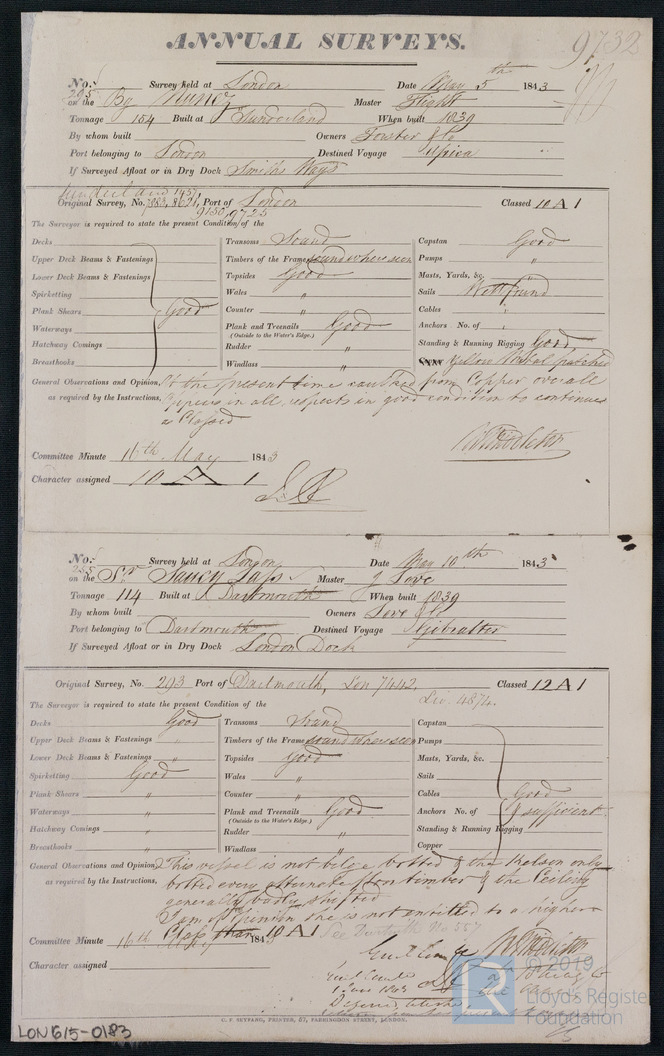 ANNUAL SURVEYS.
9732
No. 295 Survey held at London Date May 5th 1843
on the Bg Nunez Master Flight
Tonnage 154 Built at Sunderland When built 1839
By whom built Owners Forster & Co
Port belonging to London Destined Voyage Africa
If Surveyed Afloat or in Dry Dock Smiths Ways
Sunderland 1437
Original Survey, No. 7883, 8621, Port of London Classed 10 A 1
9130, 9725
The Surveyor is required to state the present Condition of the
Decks Transoms Sound Capstan Good
Upper Deck Beams & Fastenings Timbers of the Frame sound where seen Pumps "
Lower Deck Beams & Fastenings Topsides Good Masts, Yards, &c. "
Spirketting Wales " Sails Well found
Plank Shears Good Counter " Cables "
Waterways Plank and Treenails Good Anchors No. of "
(Outside to the Water's Edge.)
Hatchway Comings Rudder " Standing & Running Rigging Good
Breasthooks Windlass " Yellow Metal patched
General Observations and Opinion, At the present time caulked from Copper over all
as required by the Instructions, appears in all respects in good condition to continue
as Classed
Middleton
Committee Minute 16th May 1843
Character assigned 10 A 1
No. 235 Survey held at London Date May 10th 1843
on the Sr Saucy Lass Master J Love
Tonnage 114 Built at Dartmouth When built 1839
By whom built Owners Love & Co
Port belonging to Dartmouth Destined Voyage Gibralter
If Surveyed Afloat or in Dry Dock London Dock
Original Survey, No. 293 Port of Dartmouth, Lon 7442. Classed 12 A 1
Liv. 4874.
The Surveyor is required to state the present Condition of the
Decks Good Transoms Sound Capstan
Upper Deck Beams & Fastenings " Timbers of the Frame sound where seen Pumps
Lower Deck Beams & Fastenings " Topsides Good Masts, Yards, &c.
Spirketting Good Wales " Sails
Plank Shears " Counter " Cables Good
Waterways " Plank and Treenails Good Anchors No. of & sufficient
(Outside to the Water's Edge.)
Hatchway Comings " Rudder " Standing & Running Rigging
Breasthooks " Windlass " Copper
General Observations and Opinion, This vessel is not bilge bolted & the Kelson only
as required by the Instructions, bolted every alternate floor timber & the Ceiling
generally badly shifted
I am of Opinion she is not entitled to a higher
Class than 10 A 1
Committee Minute 16th May 1843
Character assigned
Middleton
C. F. SEYFANG, PRINTER, 57, FARRINGDON STREET, LONDON.
LON 615-0183
© 2019
Lloyd's Register
Foundation